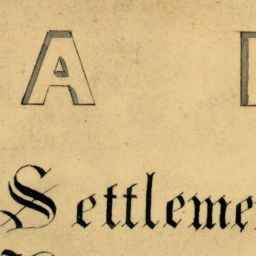 A
Settleme